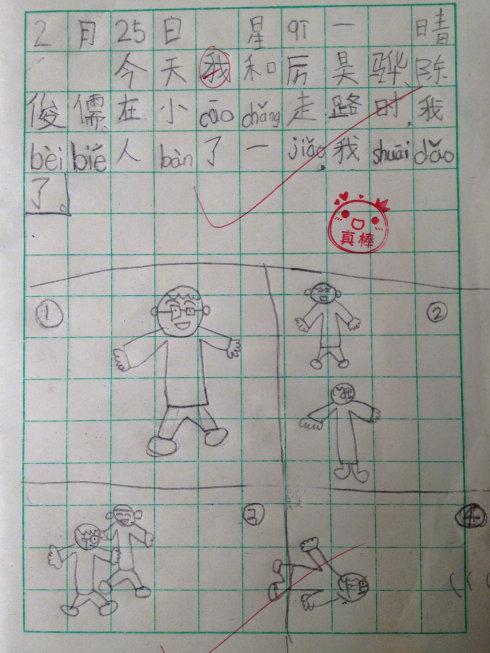 2月25日 星期一 晴
今天我和厉昊骅陈
俊儒在小cāo chǎng走路时,我
bèi biē人bàn了一jiǎo,我shuāi dǎo
了。
真棒
①
②
③
④